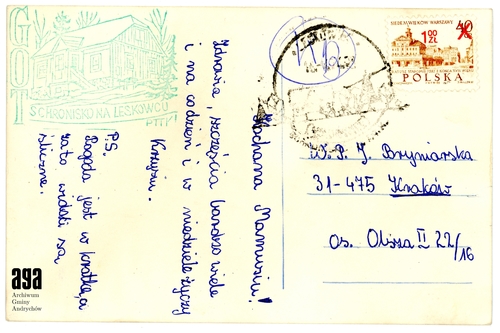 GOT
SCHRONISKO NA LESKOWCU
PTTK
Kochana Mamusiu!
Zdrowia, szczęścia bardzo wiele
i na codzień i w niedziele życzy
Krzysiu.
P.S.
Pogoda jest w kratkę, a
za to widoki są
śliczne.
SIEDEM WIEKÓW WARSZAWY
40
1.00
ZŁ
POLSKA
W.P. J. Bryniarska
31-475 Kraków
os. Olsza II 22/16
aga
Archiwum
Gminy
Andrychów